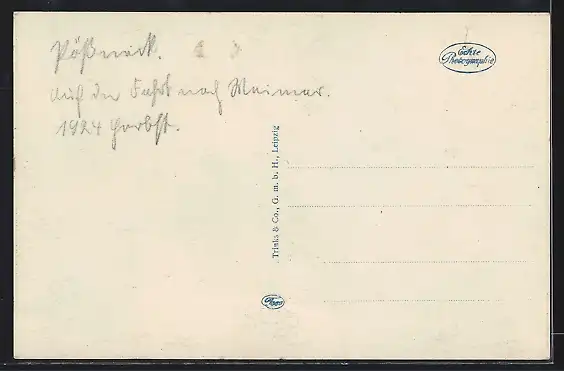 Pößneck.
Auf der Fahrt nach Weimar.
1924 Herbst.
Echte
Photographie
Trinks & Co., G. m. b. H., Leipzig